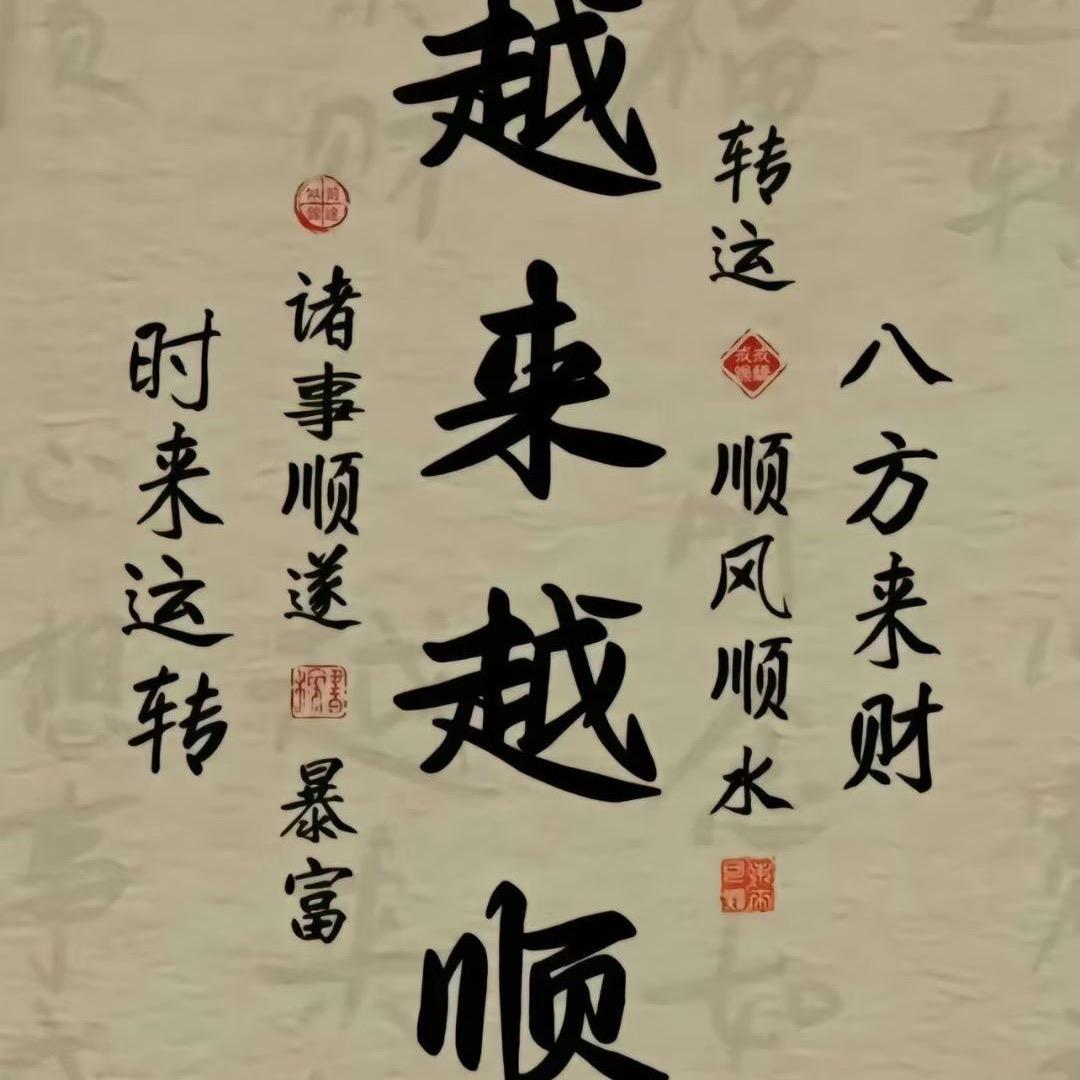 八方来财
转运
顺风顺水
越来越顺
前途
似锦
诸事顺遂
暴富
时来运转